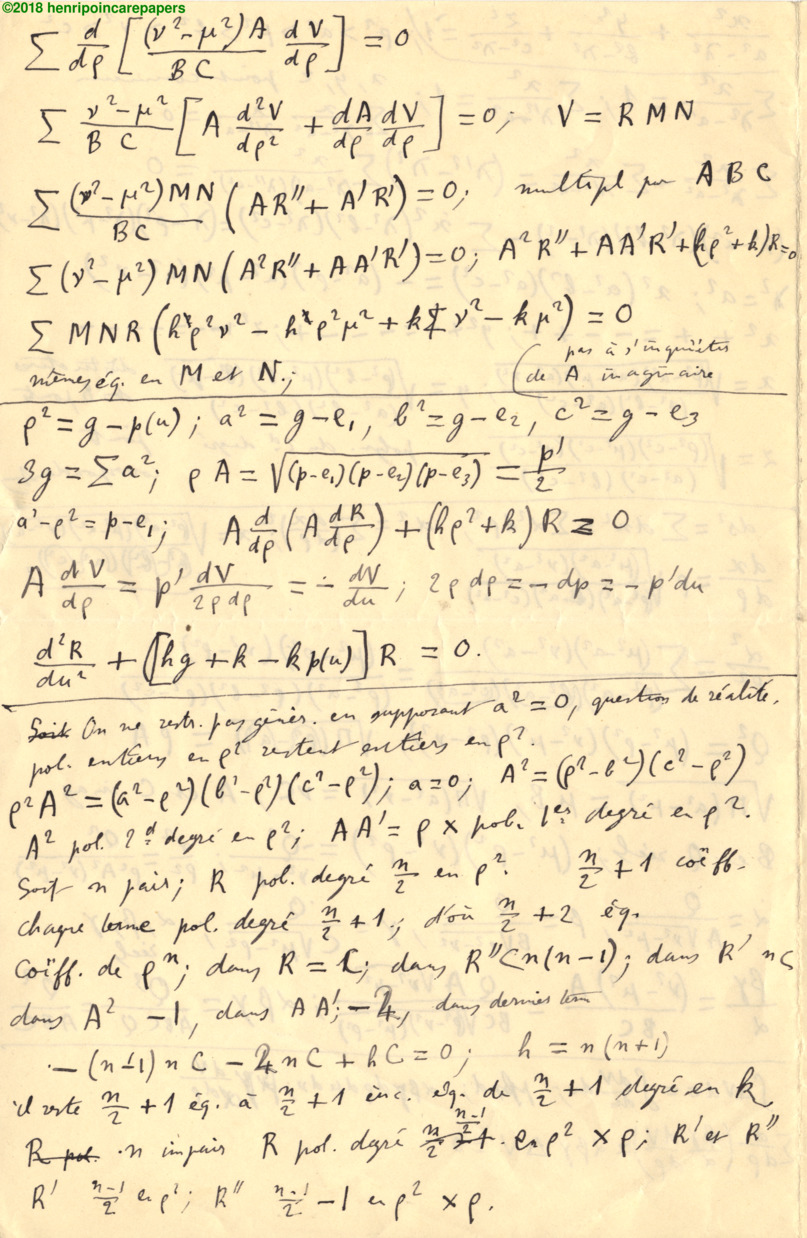 ©2018 henripoincarepapers
∑ d/dρ [ (ν²-μ²)A / BC dV/dρ ] = 0
∑ ν²-μ² / B C [ A d²V/dρ² + dA/dρ dV/dρ ] = 0; V = R M N
∑ (ν²-μ²) MN / BC ( A R'' + A' R' ) = 0; multipl par A B C
∑ (ν²-μ²) MN ( A² R'' + A A' R' ) = 0; A² R'' + A A' R' + (hρ²+k) R = 0
∑ M N R ( hρ²ν² - hρ²μ² + k ν² - k μ² ) = 0
mêmes éq. en M et N.; ( pas à s'inquiéter
de A imaginaire
ρ² = g - p(u); a² = g - e₁, b² = g - e₂, c² = g - e₃
3g = ∑ a²; ρ A = √(p-e₁)(p-e₂)(p-e₃) = p'/2
a² - ρ² = p - e₁; A d/dρ (A dR/dρ) + (hρ² + k) R = 0
A dV/dρ = p' dV/2ρdρ = - dV/du; 2ρ dρ = - dp = - p'du
d²R/du² + [hg + k - k p(u)] R = 0.
Soit On ne restr. pas génér. en supposant a² = 0, question de réalité.
pol. entiers en ρ² restent entiers en ρ².
ρ²A² = (a²-ρ²)(b²-ρ²)(c²-ρ²); a=0; A² = (ρ²-b²)(c²-ρ²)
A² pol. 2d degré en ρ²; A A' = ρ × pol. 1er degré en ρ².
Soit n pair; R pol. degré n/2 en ρ². n/2 + 1 coëff.
chaque terme pol. degré n/2 + 1; d'où n/2 + 2 éq.
Coëff. de ρⁿ; dans R = C; dans R'' C n(n-1); dans R' nC
dans A² -1, dans A A'; -2, dans dernier term
- (n-1) n C - 2 n C + h C = 0; h = n(n+1)
il reste n/2 + 1 éq. à n/2 + 1 inc. éq. de n/2 + 1 degré en k
R pol. n impair R pol. degré n-1/2 en ρ² × ρ; R' et R''
R' n-1/2 en ρ²; R'' n-1/2 - 1 en ρ² × ρ.